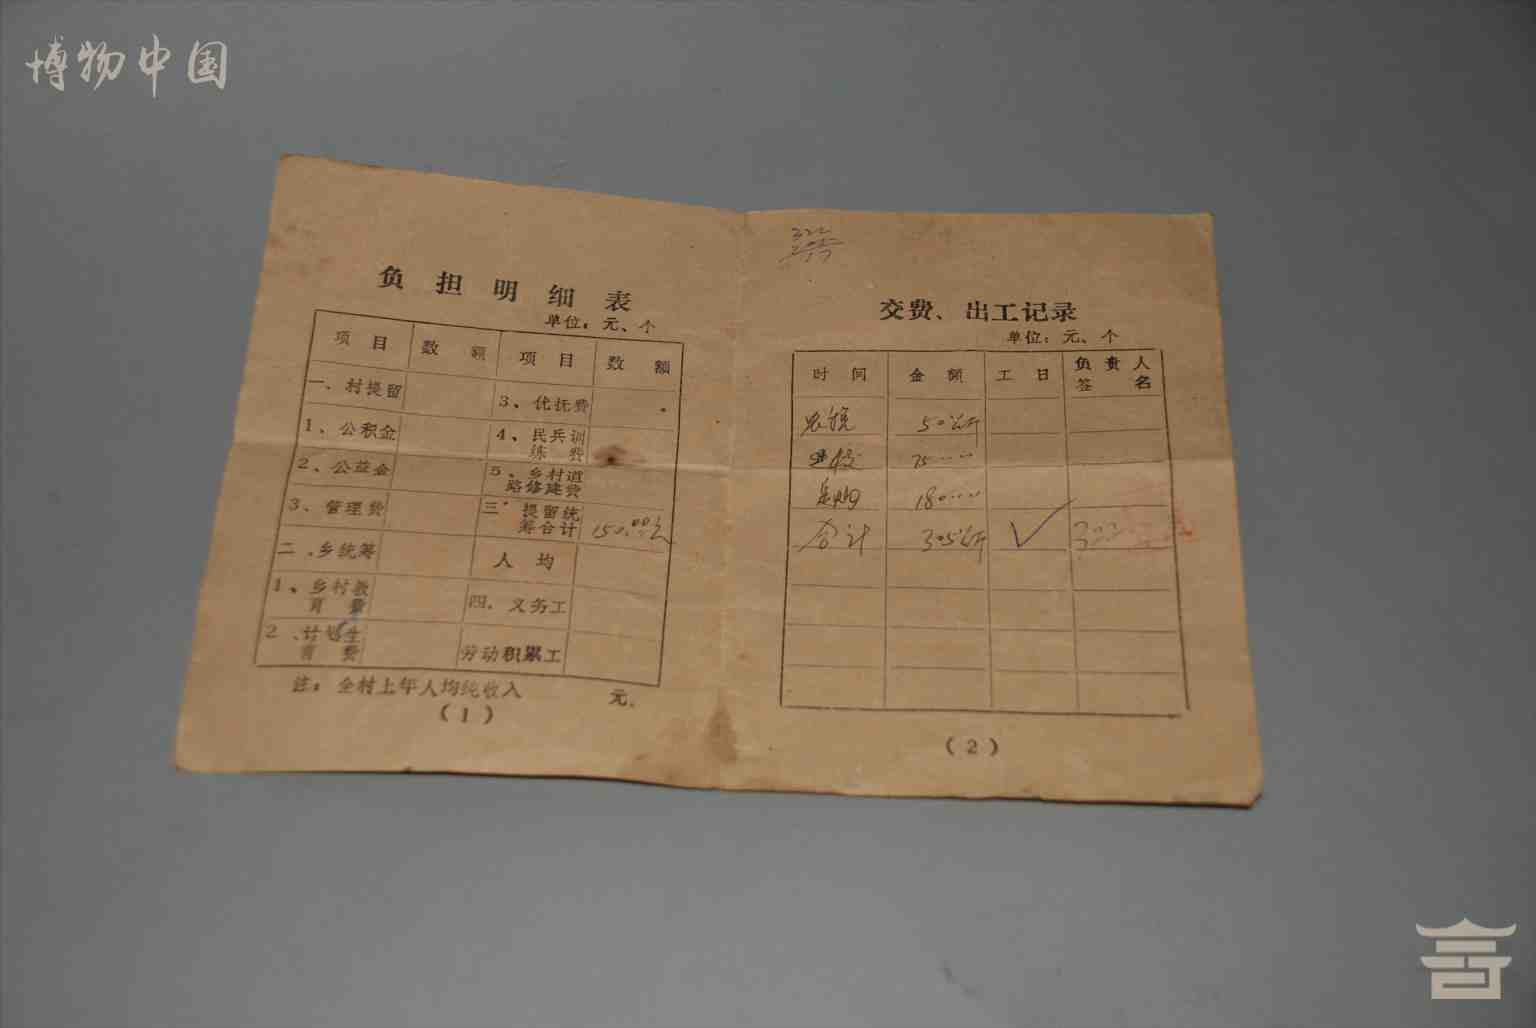 博物中国
负担明细表
单位：元、个
项目 数额 项目 数额
一、村提留 3、优抚费
1、公积金 4、民兵训练费
2、公益金 5、乡村道路修建费
3、管理费 三、提留统筹合计 150.00元
二、乡统筹 人均
1、乡村教育费 四、义务工
2、计划生育费 劳动积累工
注：全村上年人均纯收入 元。
（1）
322
交费、出工记录
单位：元、个
时间 金额 工日 负责人签名
农税 50公斤
75
定购 180
合计 305公斤 ✓
（2）